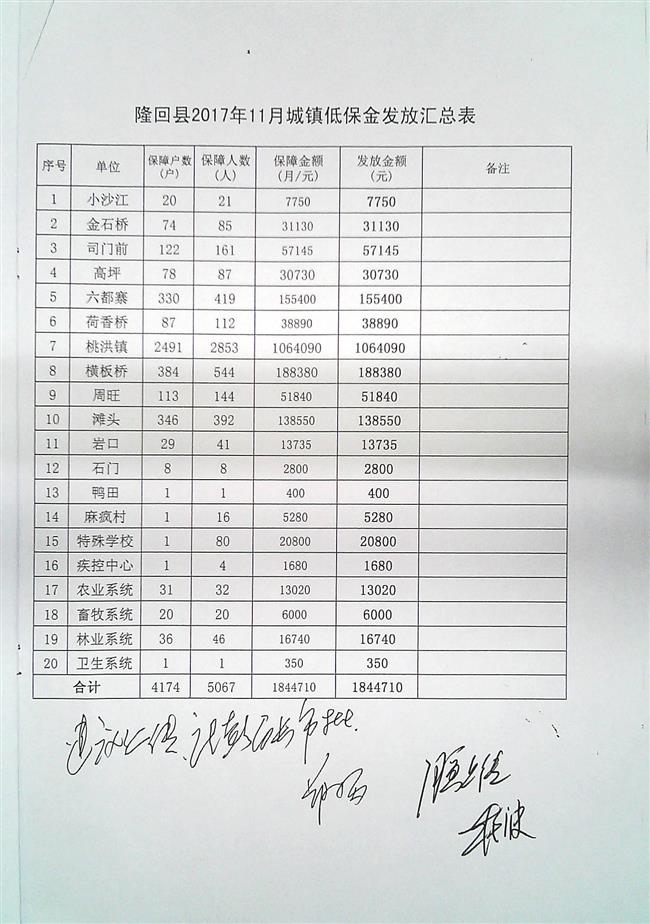 隆回县2017年11月城镇低保金发放汇总表
序号 单位 保障户数(户) 保障人数(人) 保障金额(月/元) 发放金额(元) 备注
1 小沙江 20 21 7750 7750
2 金石桥 74 85 31130 31130
3 司门前 122 161 57145 57145
4 高坪 78 87 30730 30730
5 六都寨 330 419 155400 155400
6 荷香桥 87 112 38890 38890
7 桃洪镇 2491 2853 1064090 1064090
8 横板桥 384 544 188380 188380
9 周旺 113 144 51840 51840
10 滩头 346 392 138550 138550
11 岩口 29 41 13735 13735
12 石门 8 8 2800 2800
13 鸭田 1 1 400 400
14 麻疯村 1 16 5280 5280
15 特殊学校 1 80 20800 20800
16 疾控中心 1 4 1680 1680
17 农业系统 31 32 13020 13020
18 畜牧系统 20 20 6000 6000
19 林业系统 36 46 16740 16740
20 卫生系统 1 1 350 350
合计 4174 5067 1844710 1844710